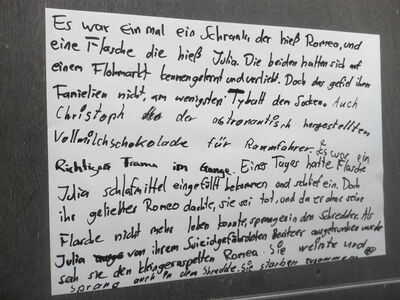 Es war ein mal ein Schrank, der hieß Romeo, und
eine Flasche die hieß Julia. Die beiden hatten sich auf
einem Flohmarkt kennengelernt und verliebt. Doch das gefiel ihren
Famielien nicht, am wenigsten Tybalt dem Socken. Auch
Christoph der der astronautisch hergestellten
Vollmilchschokolade für Raumfahrer. Es war ein
Richtiges Trama im Gange. Eines Tages hatte Flasche
Julia schlafmittel eingefüllt bekommen und schlief ein. Doch
ihr geliebter Romeo dachte, sie sei tot, und da er ohne seine
Flasche nicht mehr leben konnte, sprang er in den Schredder. Als
Julia von ihrem Suizidgefährdeten Besitzer ausgetrunken wurde
sah sie den kleingeraspelten Romeo. Sie weinte und
sprang auch in den Shredder. Sie starben zusammen